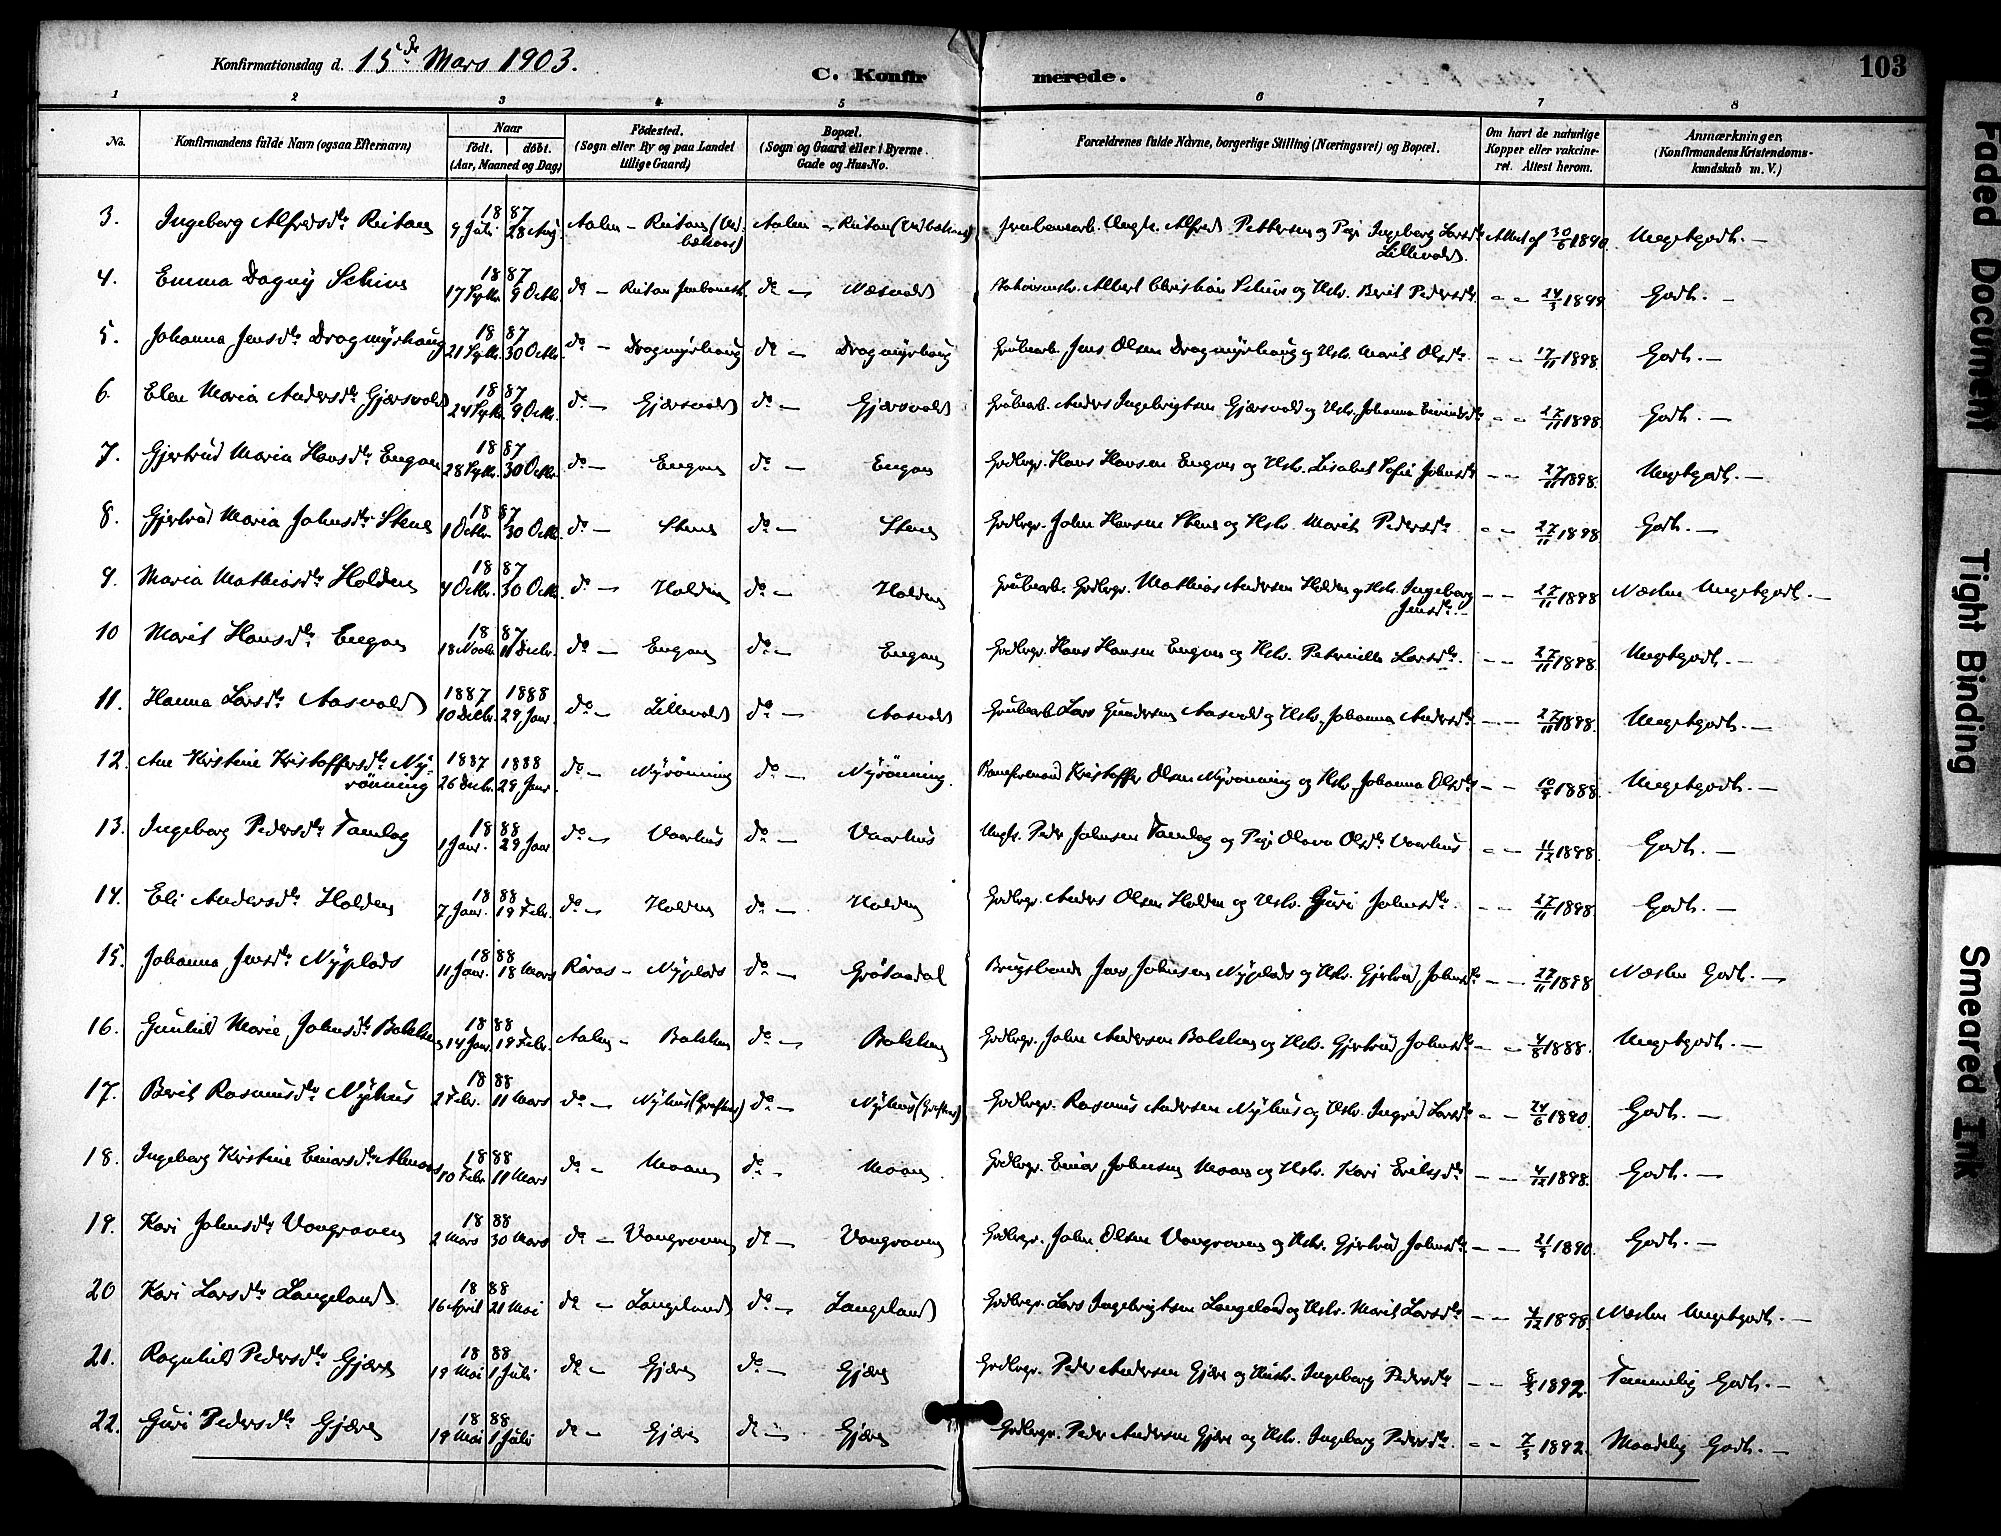 Konfirmationsdag d. 15de Mars 1903.
C. Konfirmerede.
103
1 2 3 4 5 6 7 8
No. Konfirmandens fulde Navn (ogsaa Efternavn) Naar født. døbt. (Aar, Maaned og Dag) Fødested. (Sogn eller By og paa Landet tillige Gaard) Bopæl. (Sogn og Gaard eller i Byerne Gade og Hus-No. Forældrenes fulde Navne, borgerlige Stilling (Næringsvei) og Bopæl. Om havt de naturlige Kopper eller vakcineret. Attest herom. Anmærkninger. (Konfirmandens Kristendomskundskab m. V.)
3. Ingeborg Alfredsdtr Reitan 1887 9 Juli 28 Aug. Aalen – Reitan Aalen – Reitan Ungk. Alfred Pettersen og Pige Ingeborg Larsdtr Lillevold. Attest af 1890. Megetgodt. –
4. Emma Dagny Schive 1887 17 Septbr. 9 Octbr. do – Reitan Jernbanest. do – Næsvold Albert Christian Schive og Hstr. Berit Pedersdtr – – 24/5 1899 Godt. –
5. Johanna Jensdtr Dragmyrhaug 1887 21 Septbr. 30 Octbr. do – Dragmyrhaug do – Dragmyrhaug Grubearb. Jens Olsen Dragmyrhaug og Hstr. Marit Olsdtr – – 17/11 1898. Godt. –
6. Elen Maria Andersdtr Gjærsvold 1887 24 Septbr. 9 Octbr. do – Gjærsvold do – Gjærsvold Grubearb. Anders Ingebrigtsen Gjærsvold og Hstr. Johanna Eivindsdtr – – 27/11 1898. Godt. –
7. Gjertrud Maria Hansdtr Engan 1887 28 Septbr. 30 Octbr. do – Engan do – Engan Grdbrgr. Hans Hansen Engan og Hstr. Lisabet Sofie Johnsdtr – – 27/11 1898. Megetgodt. –
8. Gjertrud Maria Johnsdtr Stene 1887 1 Octbr. 30 Octbr. do – Stene do – Stene Grdbrgr. John Hansen Stene og Hstr. Marit Pedersdtr – – 27/11 1898 Godt. –
9. Maria Mathiasdtr Holden 1887 4 Octbr. 30 Octbr. do – Holden do – Holden Grubearb. Grdbrgr. Mathias Andersen Holden og Hstr. Ingeborg Jensdtr. – – – 27/11 1898 Næsten Megetgodt. –
10 Marit Hansdtr Engan 1887 18 Novbr. 11 Decbr. do – Engan do – Engan Grdbrgr. Hans Hansen Engan og Hstr. Petronille Larsdtr. – – 27/11 1898 Megetgodt. –
11. Hanna Larsdtr Aasvold 1887 10 Decbr. 1888 29 Janr. do – Lillevold do – Aasvold Grubearb. Lars Gundersen Aasvold og Hstr. Johanna Andersdtr – – 27/11 1898. Megetgodt. –
12. Ane Kristine Kristoffersdtr Nyrønning 1887 26 Decbr. 1888 29 Janr. do – Nyrønning do – Nyrønning. Baneformand Kristoffer Olsen Nyrønning og Hstr. Johanna Olsdtr – – 1888. Megetgodt. –
13. Ingeborg Pedersdtr Tamlag 1888 1 Janr. 29 Janr do – Vaarhus do – Vaarhus Ungk. Peder Johnsen Tamlag og Pige Olava Olsdtr Vaarhus – – 11/12 1898. Godt. –
14. Eli Andersdtr Holden 1888 7 Janr. 19 Febr. do – Holden do – Holden Grdbrgr. Anders Olsen Holden og Hstr. Guri Johnsdtr. – – 27/11 1898. Godt. –
15. Johanna Jensdtr Nyplads 1888 11 Janr. 18 Mars Røros – Nyplads do – Grøtaadal Jens Johnsen Nyplads og Hstr. Gjertrud Johnsdtr – – 27/11 1898 Næsten Godt. –
16. Gunhild Marie Johnsdtr Bolsken 1888 14 Janr. 19 Febr. Aalen – Bolsken do – Bolsken Grdbrgr. John Andersen Bolsken og Hstr. Gjertrud Johnsdtr – – 4/8 1888. Megetgodt. –
17. Berit Rasmusdtr Nyhus 1888 2 Febr. 11 Mars do – Nyhus do – Nyhus Grdbrgr. Rasmus Andersen Nyhus og Hstr. Ingrid Larsdtr – – 24/6 1890. Godt. –
18. Ingeborg Kristine Einarsdtr Moan 1888 10 Febr. 11 Mars do – Moan do – Moan. Grdbrgr. Einar Johnsen Moan og Hstr. Kari Eriksdtr – – 4/12 1898. Godt. –
19. Kari Johnsdtr Vongraven 1888 2 Mars 30 Mars do – Vongraven do – Vongraven Grdbrgr. John Olsen Vongraven og Hstr. Gjertrud Johnsdtr – – 21/5 1890. Godt. –
20 Kari Larsdtr Langeland 1888 16 April 21 Mai do – Langeland do – Langeland Grdbrgr. Lars Ingebrigtsen Langeland og Hstr. Marit Larsdtr – – 4/12 1898. Næsten Megetgodt. –
21. Ragnhild Pedersdtr Gjære 1888 19 Mai 1 Juli do – Gjære do – Gjære Grdbrgr. Peder Andersen Gjære og Hustr. Ingeborg Pedersdtr – – 8/5 1892. Temmelig Godt. –
22. Guri Pedersdtr Gjære 1888 19 Mai 1 Juli do – Gjære do – Gjære Grdbrgr. Peder Andersen Gjære og Hstr. Ingeborg Pedersdtr. – – 7/5 1892. Maadelig Godt. –
Faded Document
Tight Binding
Smeared Ink